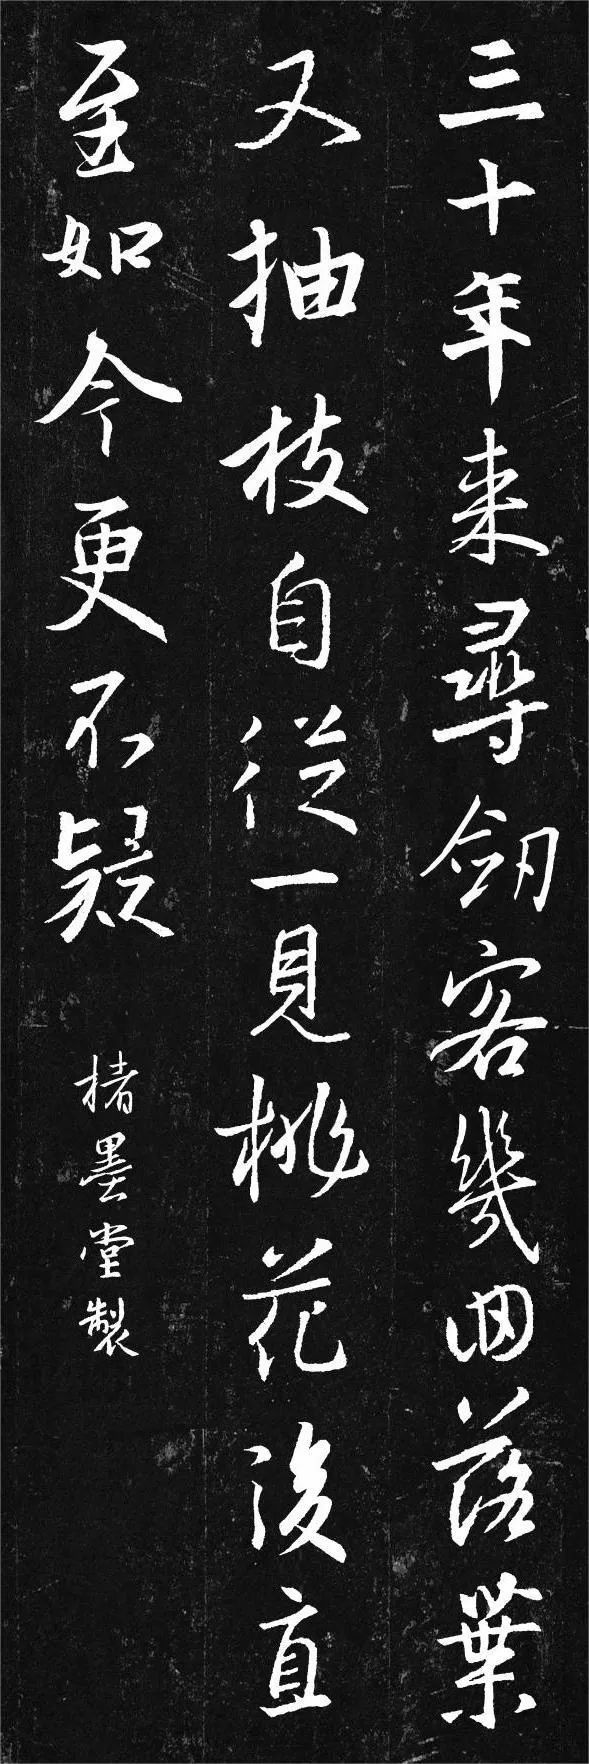 三十年来尋劒客幾回落葉
又抽枝自從一見桃花後直
至如今更不疑
楮墨堂製